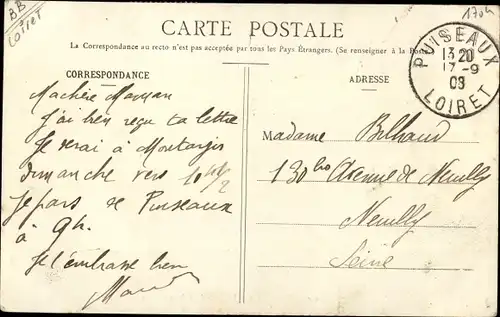 BB
Loiret
1704
CARTE POSTALE
La Correspondance au recto n'est pas acceptée par tous les Pays Étrangers. (Se renseigner à la Poste)
CORRESPONDANCE
Ma chère Maman
J'ai bien reçu ta lettre
Je serai à Montargis
dimanche vers 10h 1/2
Je pars de Puiseaux
à 9h.
Je t'embrasse bien
ADRESSE
PUISEAUX
13 20
17 - 9
08
LOIRET
Madame Belhand
130 bis Avenue de Neuilly
Neuilly
Seine